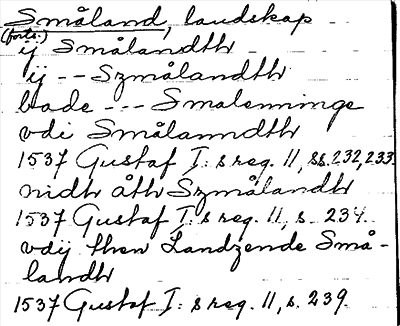 Småland, landskap
(forts.)
ij Smålandth
ij -- Szmålandth
bade --- Smalenninge
vdi Smålanndth
1537 Gustaf I: s reg. 11, ss. 232, 233.
nidh åth Szmålandh
1537 Gustaf I: s reg. 11, s. 234.
vdij then Landzende Små-
landh
1537 Gustaf I: s reg. 11, s. 239.